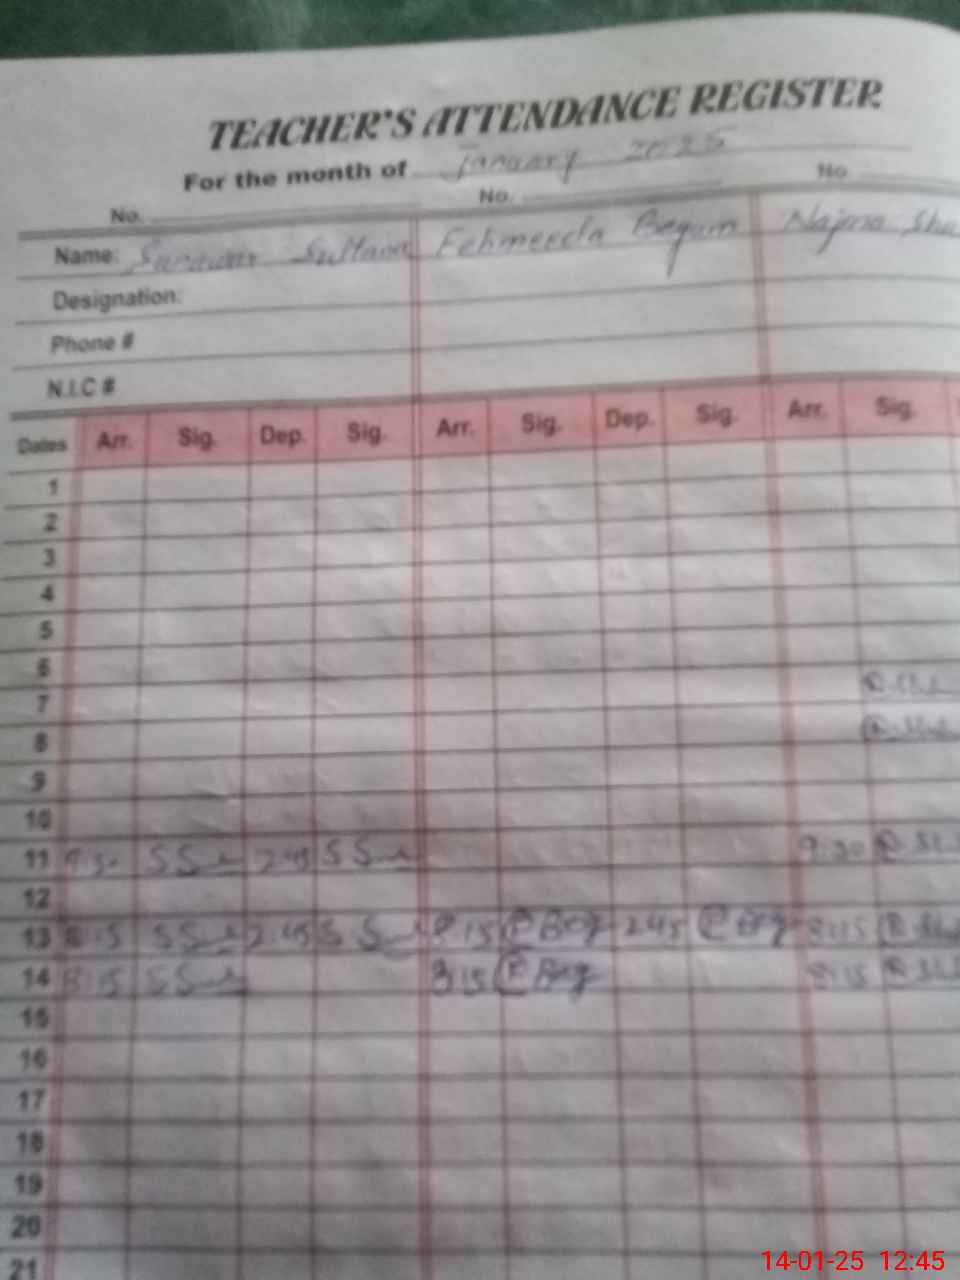 TEACHER'S ATTENDANCE REGISTER
For the month of January 2025
No. No. No.
Name: Sultana Fehmeeda Begum Najma Sha
Designation:
Phone #
N.I.C #
Dates Arr. Sig. Dep. Sig. Arr. Sig. Dep. Sig. Arr. Sig.
1
2
3
4
5
6
7
8
9
10
11 9:30 2:45 9:30
12
13 8:15 2:45 8:15 Beg 2:45 Beg 8:15
14 8:15 8:15 Beg 8:15
15
16
17
18
19
20
21
14-01-25 12:45